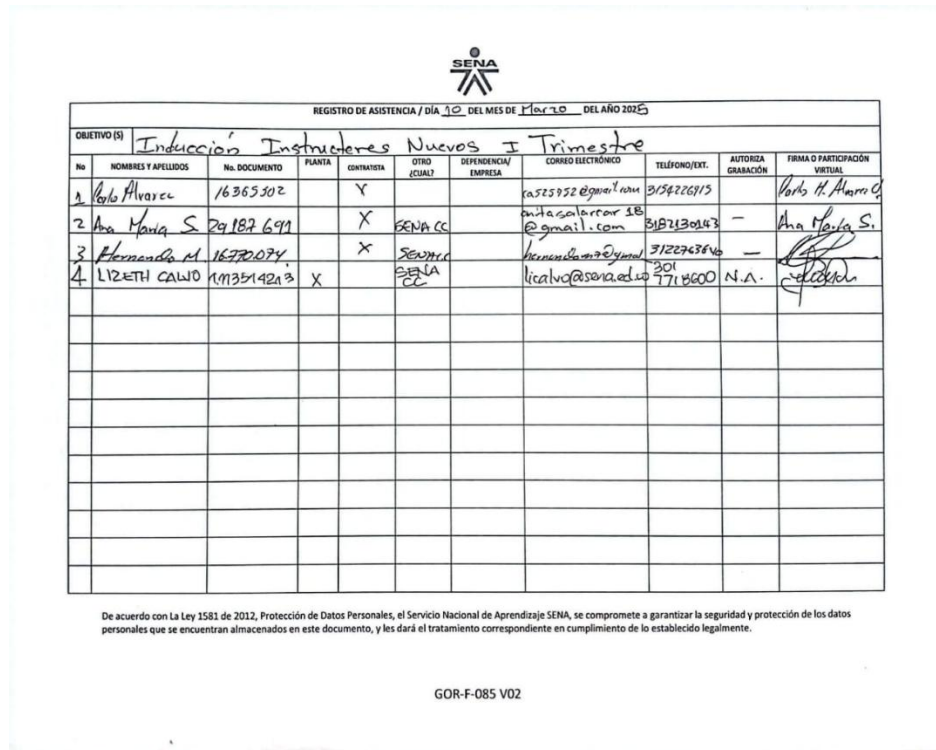 SENA
REGISTRO DE ASISTENCIA / DÍA 10 DEL MES DE Marzo DEL AÑO 2025
OBJETIVO (S) Inducción Instructores Nuevos I Trimestre
No NOMBRES Y APELLIDOS No. DOCUMENTO PLANTA CONTRATISTA OTRO ¿CUAL? DEPENDENCIA/ EMPRESA CORREO ELECTRÓNICO TELÉFONO/EXT. AUTORIZA GRABACIÓN FIRMA O PARTICIPACIÓN VIRTUAL
1 Alvarez 16365502 X 3154226915
2 Ana María S 29187691 X SENA CC anitasalazar18@gmail.com 3182130143 — Ana María S.
3 Hernando M. 16770074 X SENA CC 3122763640 —
4 LIZETH CALVO X SENA CC licalvo@sena.edu.co 301 7718600 N.A.
De acuerdo con La Ley 1581 de 2012, Protección de Datos Personales, el Servicio Nacional de Aprendizaje SENA, se compromete a garantizar la seguridad y protección de los datos
personales que se encuentran almacenados en este documento, y les dará el tratamiento correspondiente en cumplimiento de lo establecido legalmente.
GOR-F-085 V02